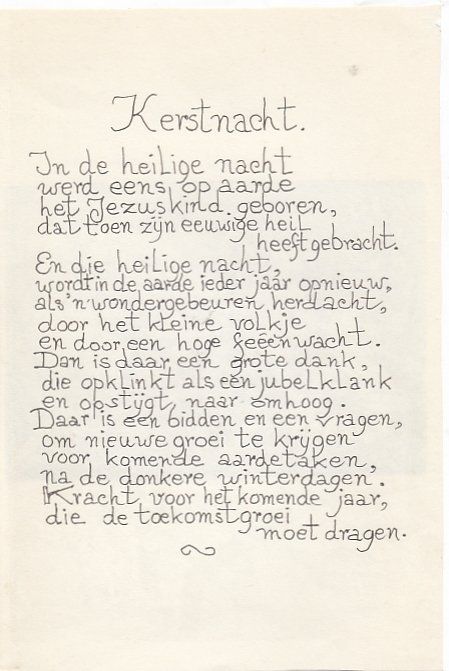 Kerstnacht.
In de heilige nacht
werd eens op aarde
het Jezuskind geboren,
dat toen zijn eeuwige heil
heeft gebracht.
En die heilige nacht,
wordt in de aarde ieder jaar opnieuw,
als 'n wondergebeuren herdacht,
door het kleine volkje
en door een hoge feeënwacht.
Dan is daar een grote dank,
die opklinkt als een jubelklank
en opstijgt naar omhoog.
Daar is een bidden en een vragen,
om nieuwe groei te krijgen
voor komende aardetaken,
na de donkere winterdagen.
Kracht, voor het komende jaar,
die de toekomstgroei
moet dragen.